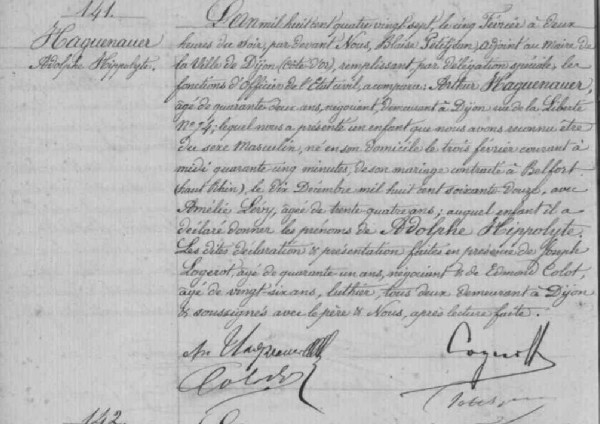 141.
Haguenauer
Adolphe Hippolyte.
L'an mil huit cent quatre vingt sept, le cinq Février à deux
heures du soir, par devant Nous, Blaise Petitjean, adjoint au Maire de
la Ville de Dijon (Côte d'or), remplissant par délégation spéciale, les
fonctions d'officier de l'Etat civil, a comparu Arthur Haguenauer,
âgé de quarante deux ans, négociant, demeurant à Dijon rue de la Liberté
No 74; lequel nous a présenté un enfant que nous avons reconnu être
du sexe Masculin, né en son domicile le trois février courant à
midi quarante cinq minutes, de son mariage contracté à Belfort
(haut Rhin), le dix Décembre mil huit cent soixante douze, avec
Amélie Lévy, âgée de trente quatre ans; auquel enfant il a
déclaré donner les prénoms de Adolphe Hippolyte.
Les dites déclaration & présentation faites en présence de Joseph
Logerot, âgé de quarante un ans, négociant & de Edmond Colot,
âgé de vingt six ans, luthier, tous deux demeurant à Dijon
& soussignés avec le père & Nous, après lecture faite.
Haguenauer
142.